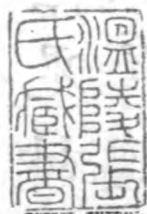 溫陵張
氏藏書